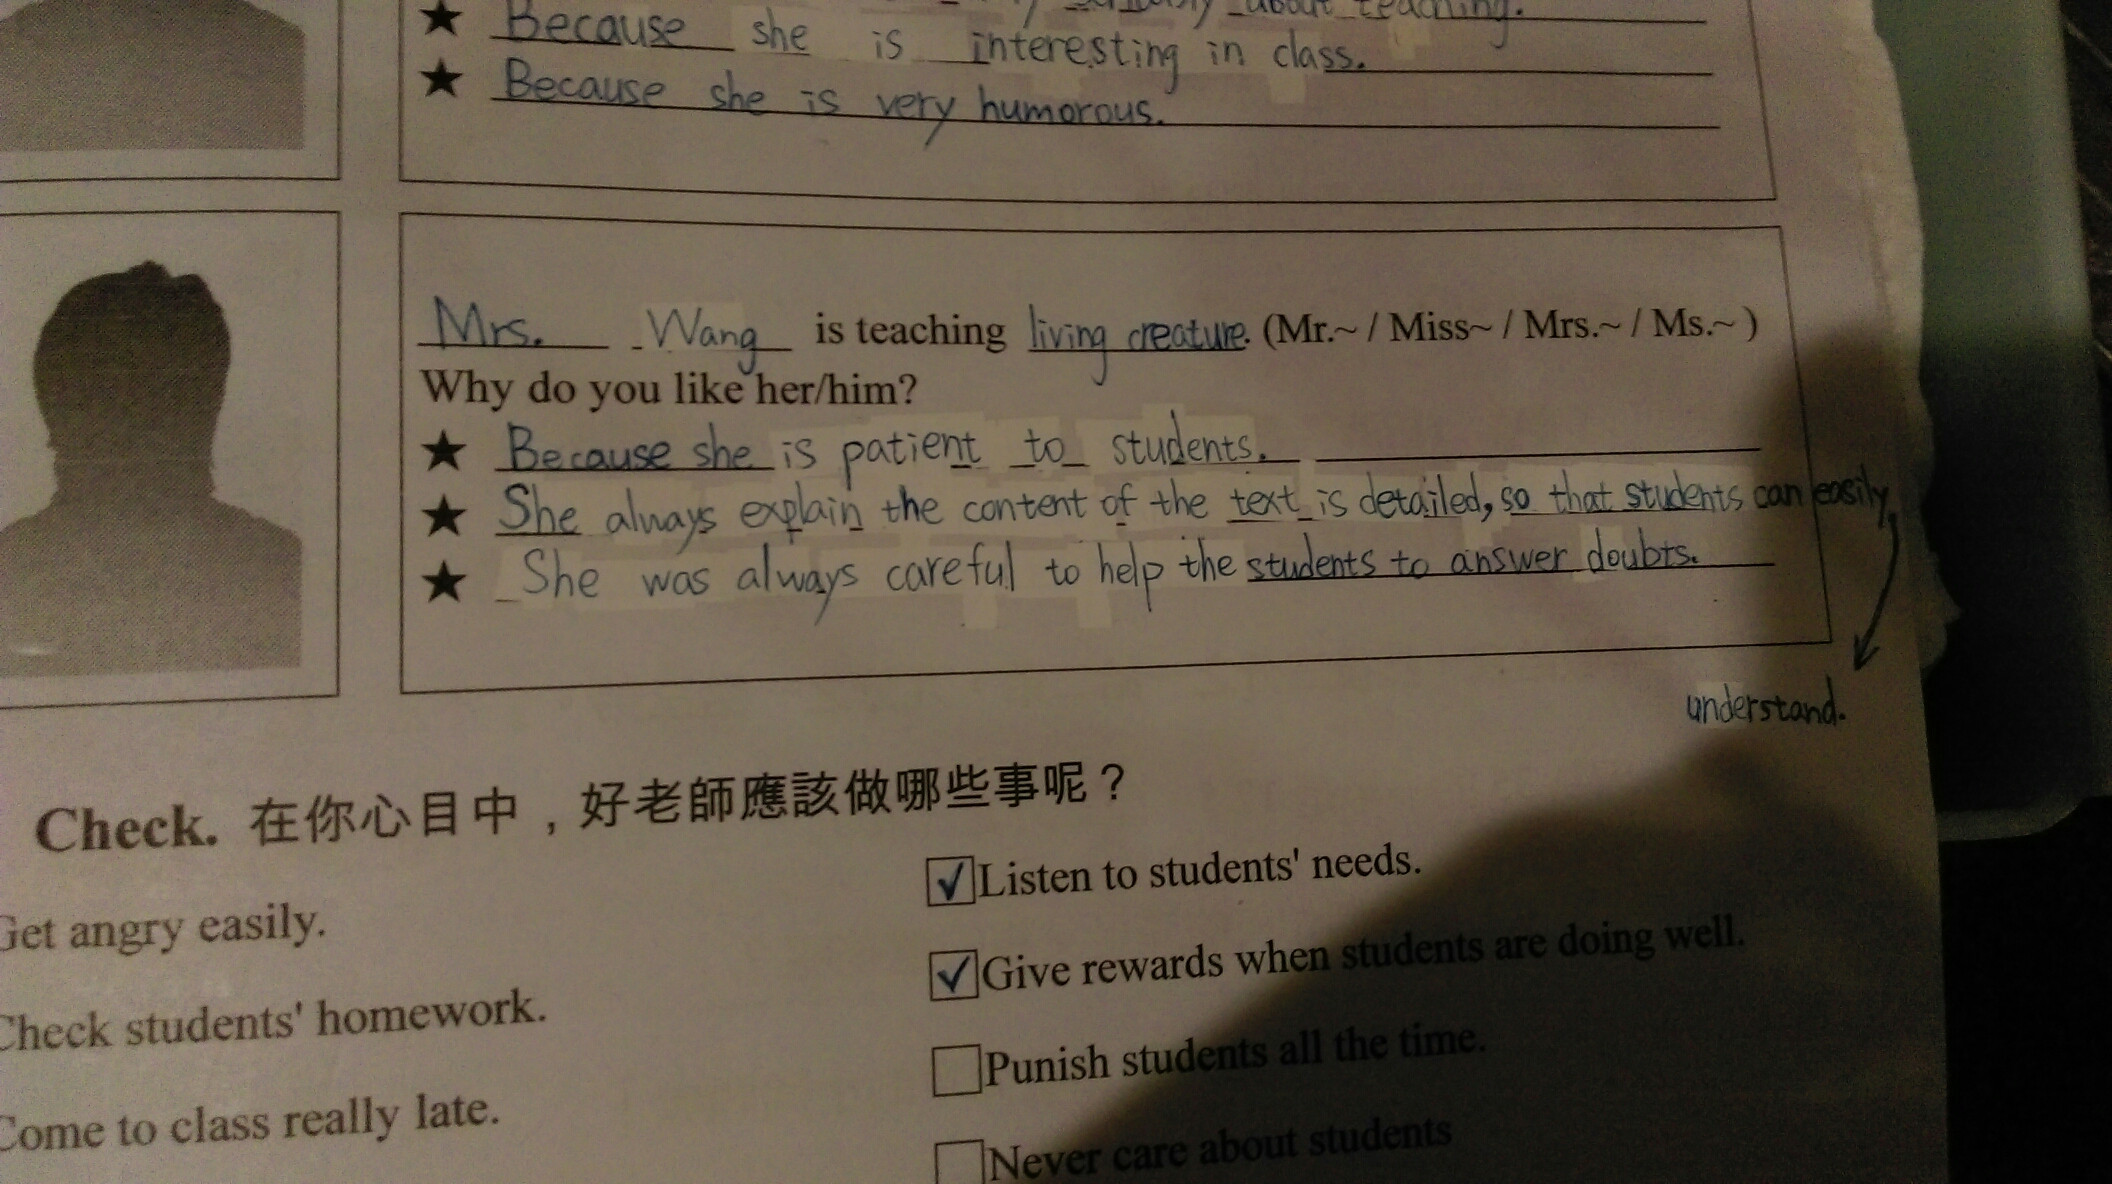 about teaching.
★ Because she is interesting in class.
★ Because she is very humorous.
Mrs. Wang is teaching living creature. (Mr.~ / Miss~ / Mrs.~ / Ms.~ )
Why do you like her/him?
★ Because she is patient to students.
★ She always explain the content of the text is detailed, so that students can easily
★ She was always careful to help the students to answer doubts.
understand.
Check. 在你心目中，好老師應該做哪些事呢？
Get angry easily.
Listen to students' needs.
Check students' homework.
Give rewards when students are doing well.
Come to class really late.
Punish students all the time.
Never care about students